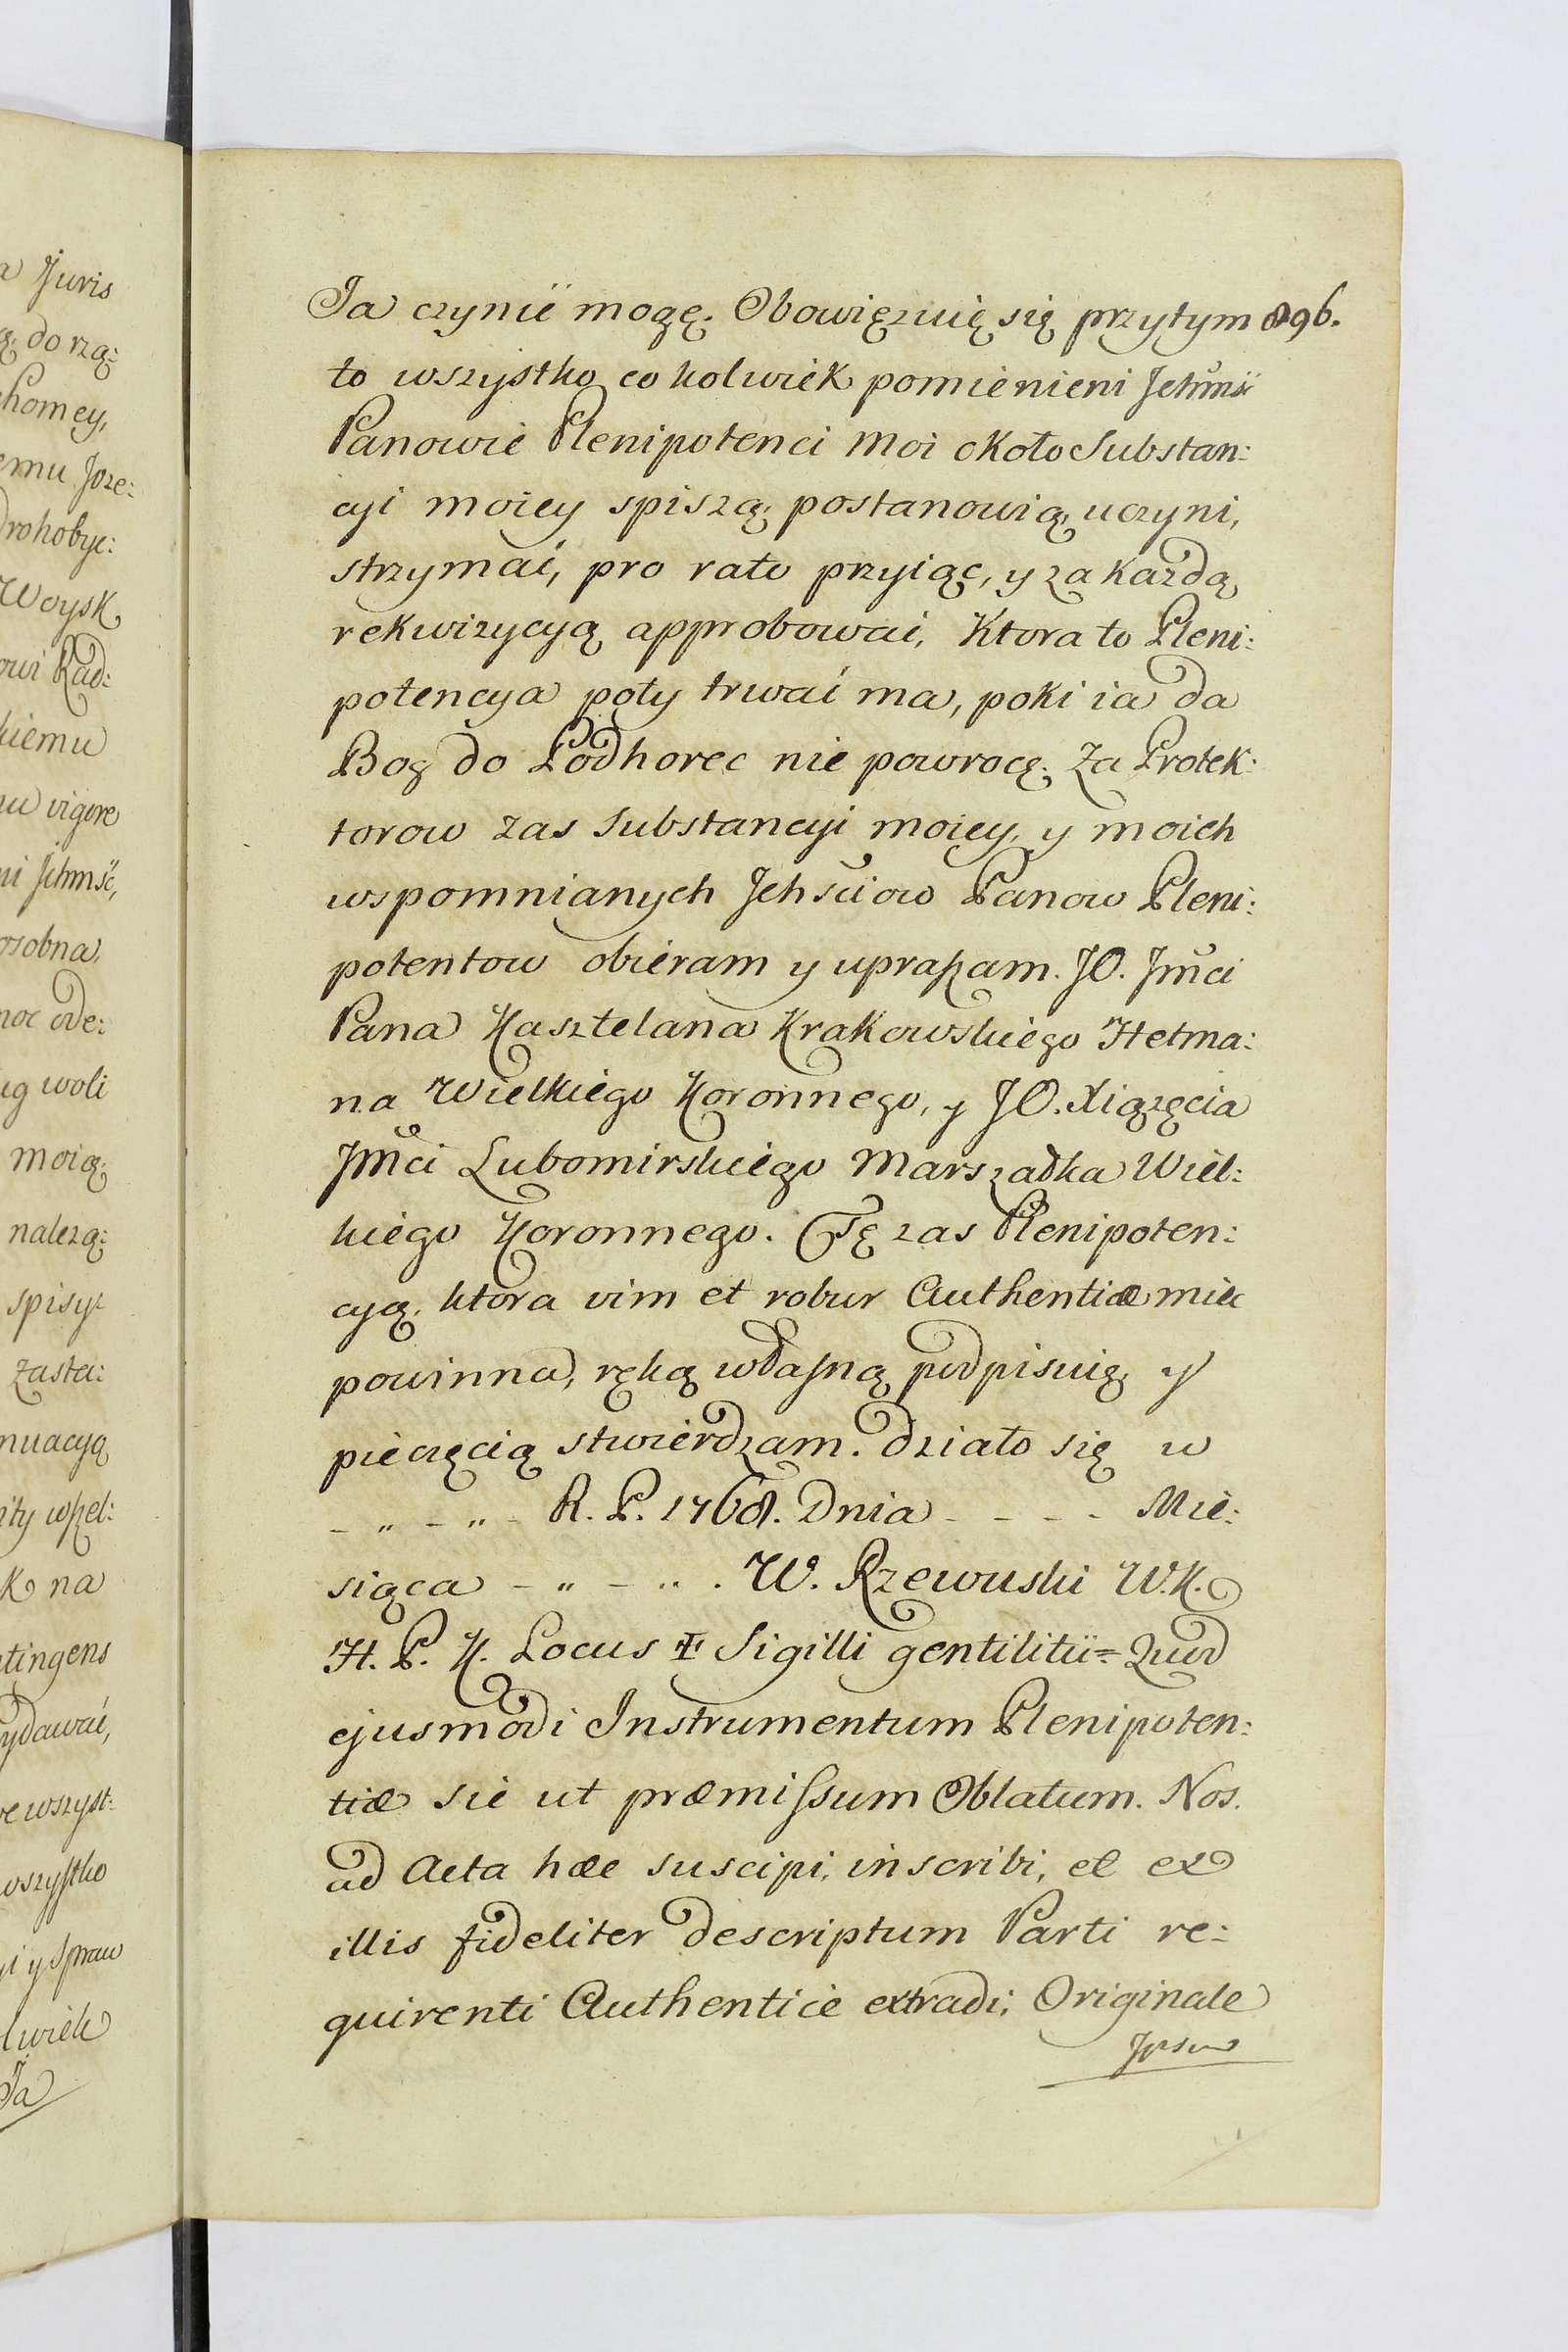 a Juris
ę, do rzą:
homey,
emu Joze:
Drohobyc:
Woysk
owi Rad:
kiemu
vigore
ni Jchmść,
osobna,
moc ode:
ug woli
moią,
nalezą:
spisy:
zasta:
nuacyą
ity wszel:
K na
tingens
ydawać,
re wszyst:
wszystko
yi y spraw
lwiek
Ja
Ja czynić mogę. Obowięzuię się przytym 896.
to wszystko co kolwiek pomienieni Jchmść
Panowie Plenipotenci moi około Substan:
cyi moiey spiszą, postanowią, uczyni,
strzymać, pro rato przyiąc, y za kazdą
rekwizycyą approbować, Ktora to Pleni:
potencya poty trwać ma, poki ia da
Bog do Podhorec nie powrocę. Za Protek:
torow zas Substancyi moiey, y moich
wspomnianych Jchściow Panow Pleni:
potentow obieram y upraszam. JO. Jmci
Pana Kasztelana Krakowskiego Hetma:
na Wielkiego Koronnego, y JO. Xiązęcia
Jmci Lubomirskiego Marszałka Wiel:
kiego Koronnego. Tę zas Plenipoten:
cyą, ktora vim et robur Authenticæ miec
powinna, ręką własną podpisuię, y
pieczęcią stwierdzam. Działo się w
- " - " - R. P. 1768. Dnia - - - - Mie:
siąca - " - " . W. Rzewuski W. K.
H. P. K. Locus ✠ Sigilli gentilitii = Quod
ejusmodi Instrumentum Plenipoten:
tiæ sic ut præmissum Oblatum. Nos.
ad Acta hæc suscipi, inscribi, et ex
illis fideliter descriptum Parti re:
quirenti Authentice extradi; Originale
Ipsum